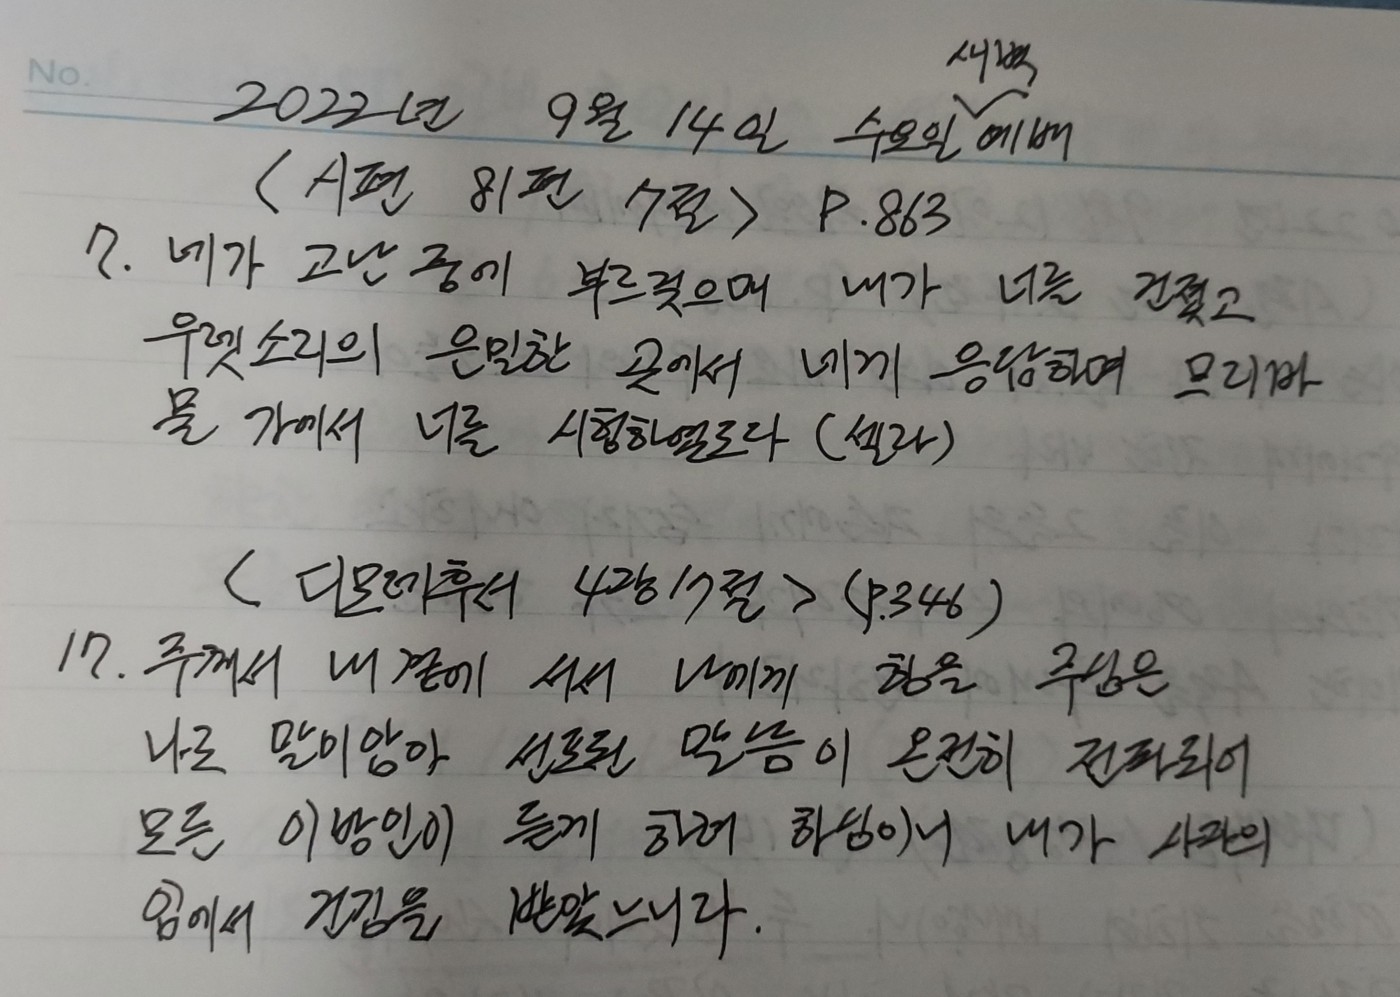 No.
2022년 9월 14일 수요일 새벽 예배
<시편 81편 7절> P.863
7. 네가 고난 중에 부르짖으매 내가 너를 건졌고
우렛소리의 은밀한 곳에서 네게 응답하며 므리바
물 가에서 너를 시험하였도다 (셀라)
<디모데후서 4장 17절> (P.346)
17. 주께서 내 곁에 서서 나에게 힘을 주심은
나로 말미암아 선포된 말씀이 온전히 전파되어
모든 이방인이 듣게 하려 하심이니 내가 사자의
입에서 건짐을 받았느니라.